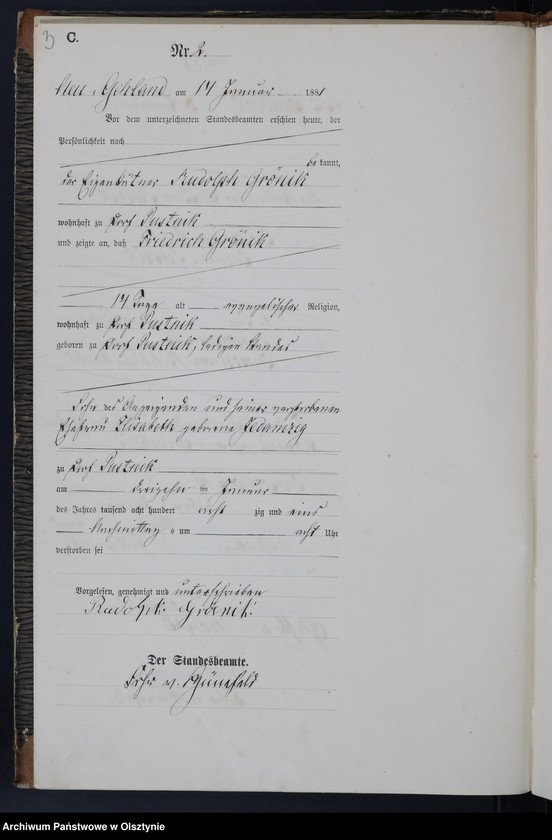 3 C.
Nr. 2.
Neu Gehland am 14 Januar 1881
Vor dem unterzeichneten Standesbeamten erschien heute, der
Persönlichkeit nach
bekannt,
der Eigenkätner Rudolph Grönik
wohnhaft zu Dorf Pustnik
und zeigte an, daß Friedrich Grönik
14 Tage alt evangelischer Religion,
wohnhaft zu Dorf Pustnik
geboren zu Dorf Pustnik, ledigen Standes
Sohn des Anzeigenden und seiner verstorbenen
Ehefrau Elisabeth geborene
zu Dorf Pustnik
am dreizehn ten Januar
des Jahres tausend acht hundert acht zig und eins
Nachmittag s um acht Uhr
verstorben sei
Vorgelesen, genehmigt und unterschrieben
Rudolph Grönik
Der Standesbeamte.
Frhr v.
Archiwum Państwowe w Olsztynie